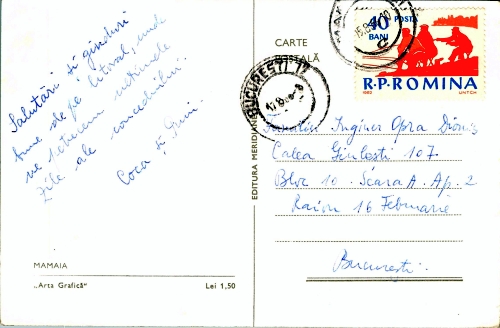 Salutări și gînduri
bune de pe litoral, unde
ne petrecem ultimele
zile ale concediului.
Coca și
MAMAIA
„Arta Grafică"
Lei 1,50
EDITURA MERIDIANE
CARTE
POȘTALĂ
BUCUREȘTI 17
40
BANI
POSTA
R·P·ROMINA
Inginer Opra
Calea Giulești 107
Bloc 10 Scara A. Ap. 2
Raion 16 Februarie
București